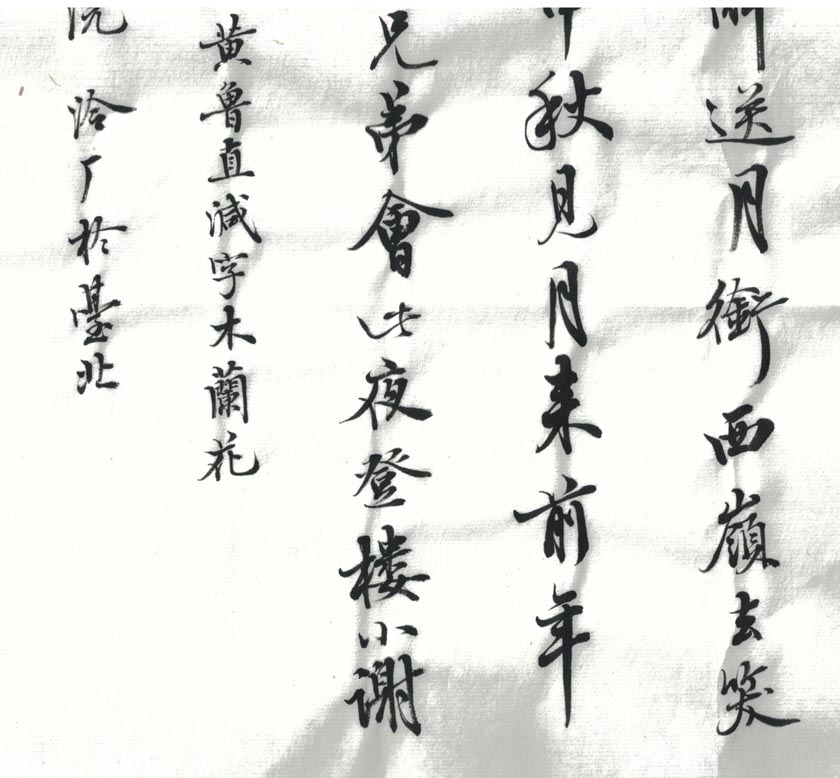 送月銜西嶺去笑
中秋見月来前年
兄弟會此夜登楼小謝
黄魯直減字木蘭花
厂於臺北